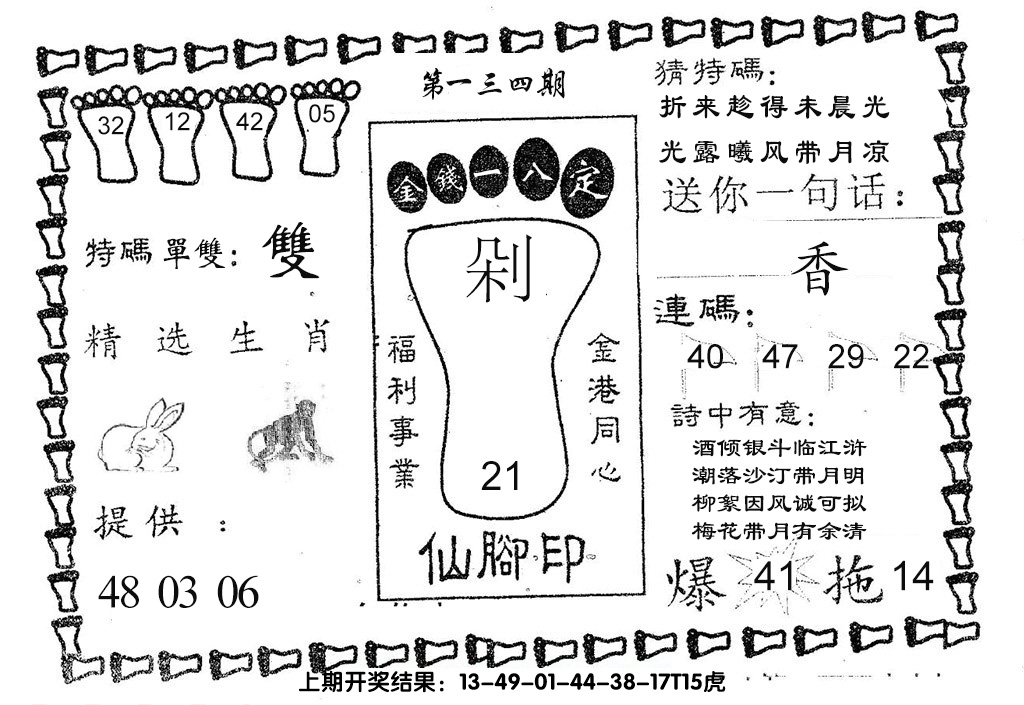 第一三四期
32 12 42 05
特碼單雙：雙
精选生肖
提供：
48 03 06
金錢一八定
剁
福利事業
金港同心
21
仙腳印
猜特碼：
折来趁得未晨光
光露曦风带月凉
送你一句话：
香
連碼：
40 47 29 22
詩中有意：
酒倾银斗临江浒
潮落沙汀带月明
柳絮因风诚可拟
梅花带月有余清
爆 41 拖 14
上期开奖结果：13-49-01-44-38-17T15虎